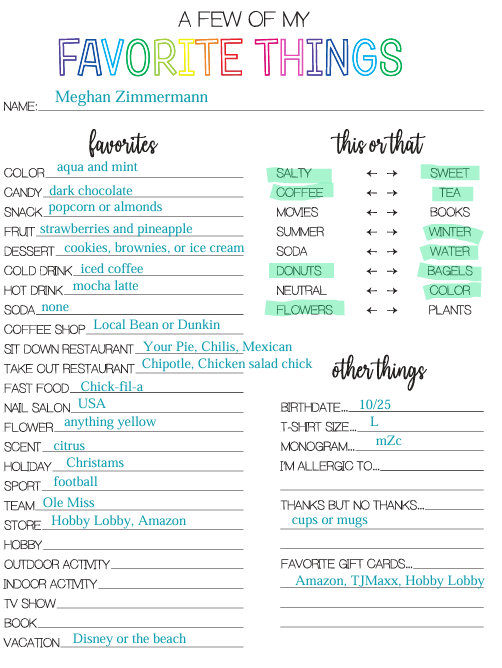 A FEW OF MY
FAVORITE THINGS
NAME: Meghan Zimmermann
favorites
COLOR aqua and mint
CANDY dark chocolate
SNACK popcorn or almonds
FRUIT strawberries and pineapple
DESSERT cookies, brownies, or ice cream
COLD DRINK iced coffee
HOT DRINK mocha latte
SODA none
COFFEE SHOP Local Bean or Dunkin
SIT DOWN RESTAURANT Your Pie, Chilis, Mexican
TAKE OUT RESTAURANT Chipotle, Chicken salad chick
FAST FOOD Chick-fil-a
NAIL SALON USA
FLOWER anything yellow
SCENT citrus
HOLIDAY Christams
SPORT football
TEAM Ole Miss
STORE Hobby Lobby, Amazon
HOBBY
OUTDOOR ACTIVITY
INDOOR ACTIVITY
TV SHOW
BOOK
VACATION Disney or the beach
this or that
SALTY ← → SWEET
COFFEE ← → TEA
MOVIES ← → BOOKS
SUMMER ← → WINTER
SODA ← → WATER
DONUTS ← → BAGELS
NEUTRAL ← → COLOR
FLOWERS ← → PLANTS
other things
BIRTHDATE... 10/25
T-SHIRT SIZE... L
MONOGRAM... mZc
I'M ALLERGIC TO...
THANKS BUT NO THANKS...
cups or mugs
FAVORITE GIFT CARDS...
Amazon, TJMaxx, Hobby Lobby